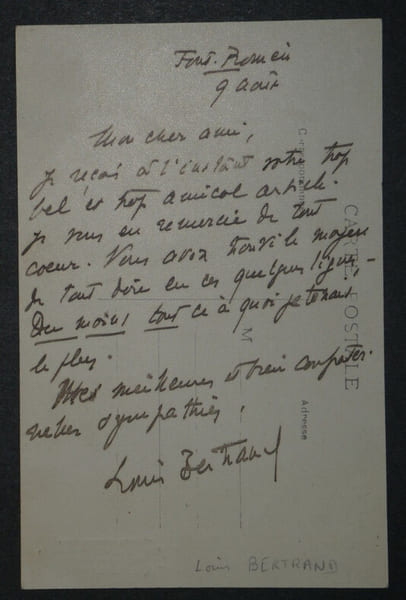 Font-Romeu
9 Août
Mon cher ami,
je reçois à l'instant votre trop
bel et trop amical article.
Je vous en remercie de tout
coeur. Vous avez trouvé le moyen
de tout dire en ces quelques lignes, –
Du moins tout ce à quoi je tenais
le plus.
Mes meilleures et bien confrater-
nelles sympathies,
Louis Bertrand
CARTE POSTALE
Correspondance
M
Adresse
Louis BERTRAND